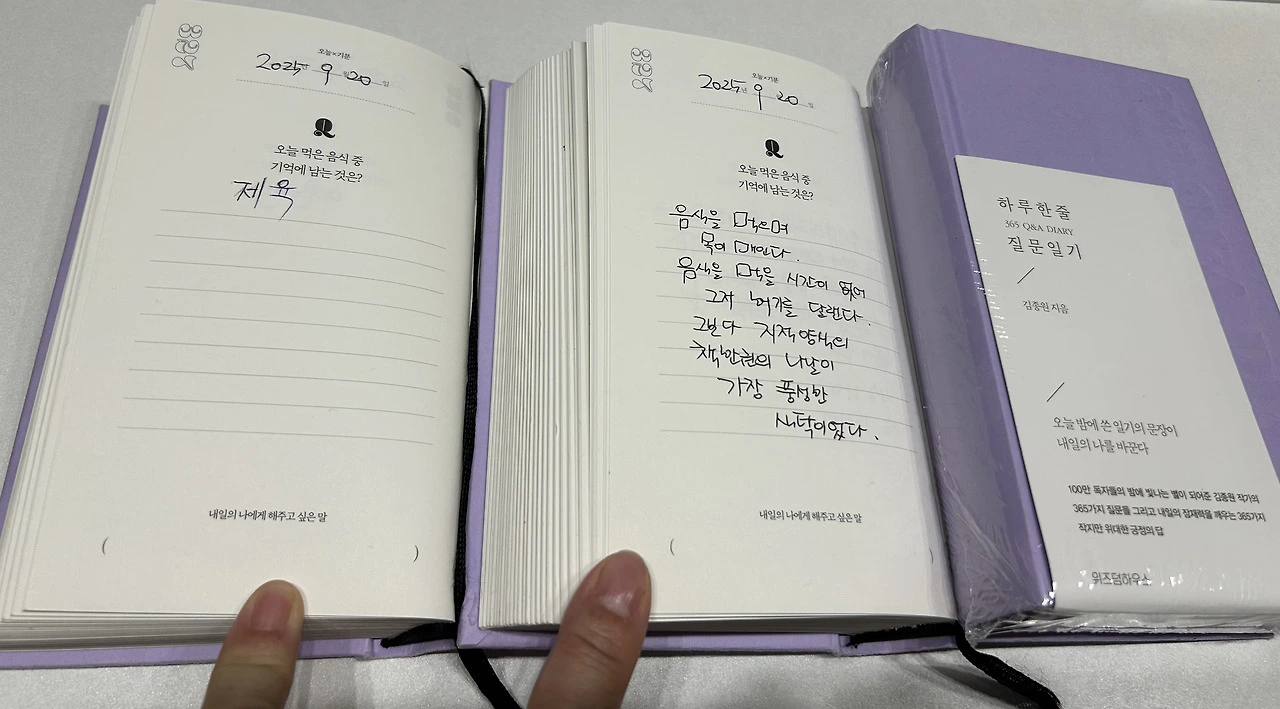 오늘×기분
2025년 9월 20일
Q
오늘 먹은 음식 중
기억에 남는 것은?
제육
내일의 나에게 해주고 싶은 말
( )
오늘×기분
2025년 9 20일
Q
오늘 먹은 음식 중
기억에 남는 것은?
음식을 먹으며
목이 메인다.
음식을 먹을 시간이 없어
그저 허기를 달랜다.
그보다 지적 양식의
책 만권의 나날이
가장 풍성한
식탁이었다.
내일의 나에게 해주고 싶은 말
( )
하루 한 줄
365 Q&A DIARY
질문 일기
김종원 지음
오늘 밤에 쓴 일기의 문장이
내일의 나를 바꾼다
100만 독자들의 밤에 빛나는 별이 되어준 김종원 작가의
365가지 질문들 그리고 내일의 잠재력을 깨우는 365가지
작지만 위대한 긍정의 답
위즈덤하우스